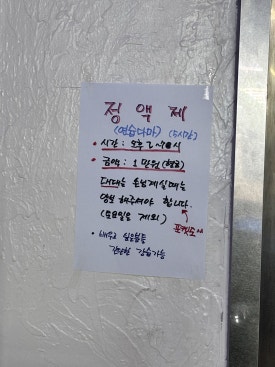 정액제
(연습다마) (5시간)
• 시간 : 오후 2~7시
• 금액 : 1만원 (현금)
대대는 손님계실때는
양보해주셔야 합니다.
(토요일은 제외) 포켓도
• 배우고 싶은분들
간단한 강습가능